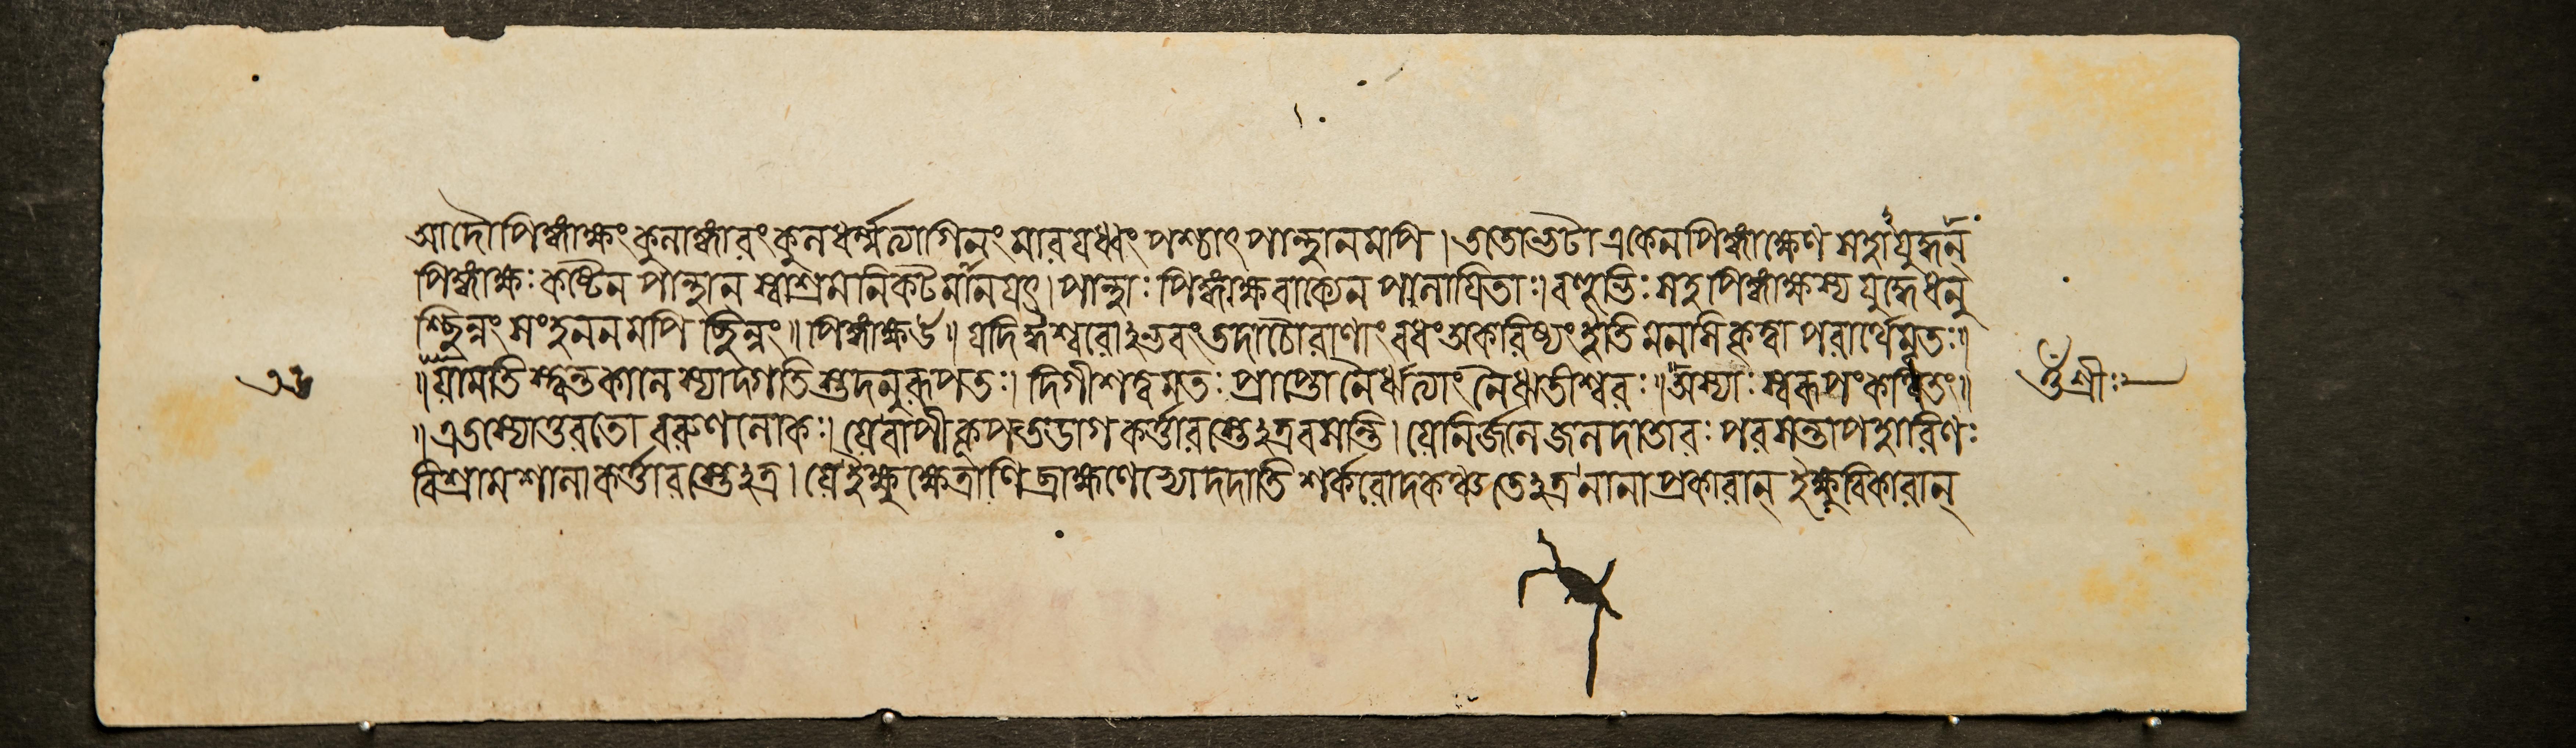 আদৌ পিঙ্গাক্ষং কুলাঙ্গারং কুলধর্ম্মত্যাগিনং মারয়ধ্বং পশ্চাৎ পান্থানমপি । ততোভটা একেন পিঙ্গাক্ষেণ সহ যুযুধুঃ
পিঙ্গাক্ষঃ কষ্টেন পান্থান স্বাশ্রমনিকটমানয়ৎ । পান্থাঃ পিঙ্গাক্ষবাক্যেন পলায়িতাঃ । বহুভিঃ সহ পিঙ্গাক্ষস্য যুদ্ধে ধনু
শ্ছিন্নং সংহননমপি ছিন্নং ॥ পিঙ্গাক্ষউ ॥ যদি ঈশ্বরোঽভবং তদা চৌরাণাং বধং অকরিষ্যং ইতি মনসি কৃত্বা পরার্থে মৃতঃ ॥
॥ যা মতি স্ত্বন্তকালে স্যাদ্গতিস্তদনুরূপতঃ । দিগীশত্বমতঃ প্রাপ্তো নৈর্ঋত্যাং নৈর্ঋতীশ্বরঃ ॥ অস্যাঃ স্বরূপং কথিতং ॥
॥ এতস্যোত্তরতো বরুণলোকঃ । যে বাপীকূপতডাগকর্ত্তারস্তেঽত্র বসন্তি । যে নির্জলে জলদাতারঃ পরসন্তাপহারিণঃ
বিশ্রামশালাকর্ত্তারস্তেঽত্র । যে ইক্ষুক্ষেত্রাণি ব্রাহ্মণেভ্যো দদাতি শর্করোদকঞ্চ তেঽত্র নানাপ্রকারান্ ইক্ষুবিকারান্
শ্রীঃ